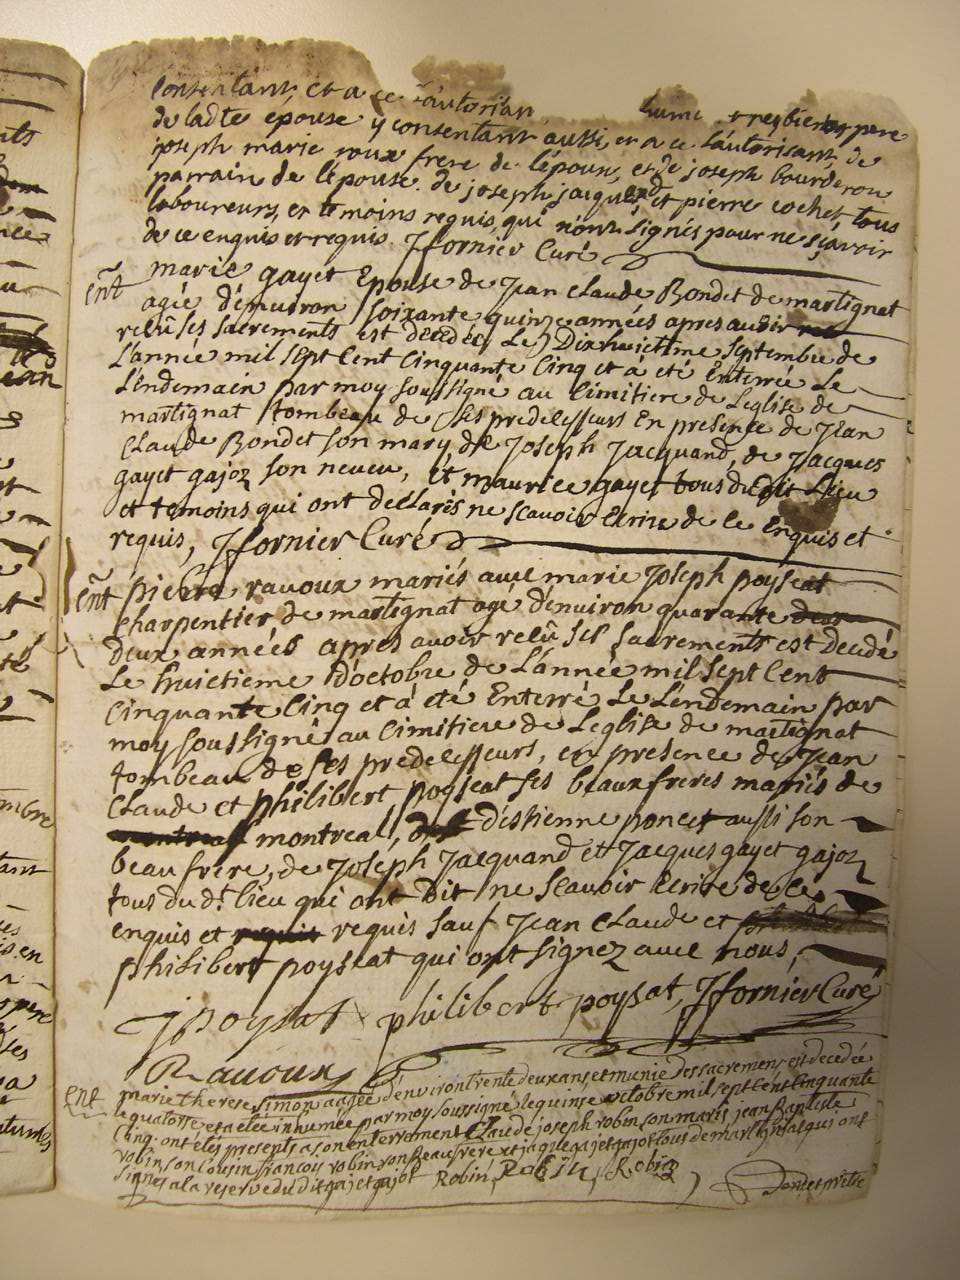 consentant, et a ce l'autorisan
de ladte epouse y consentant aussi, et a ce l'autorisant, de
joseph marie roux frere de l'epoux, et de joseph bourderon
parrain de l'epouse. de joseph jacquand et pierre cochet, tous
laboureurs, et temoins requis, qui n'ont signés pour ne sçavoir
de ce enquis et requis. Jfornier Curé
Ent marie gayet Epouse de Jean Claude Bondet de martignat
agée d'environ soixante quinze années apres avoir
relû ses sacrements est decedée, Le Dixhuictième septembre de
L'année mil sept Cent Cinquante Cinq et à été Enterrée Le
L'endemain par moy soussigné au Cimitiere de L'eglise de
martignat tombeau de ses predecesseurs En presence de Jean
Claude Bondet son mary, de Joseph Jacquand, de Jacques
gayet gajoz son neveu, et maurice gayet tous dudit Lieu
et temoins qui ont declarés ne scavoir Ecrire de ce Enquis et
requis, Jfornier Curé
Ent pierre ravoux mariés avec marie Joseph poyseat
charpentier de martignat agé d'environ quarante
deux années apres avoir relû ses sacrements est decedé
Le huictieme d'octobre de L'année mil sept Cent
Cinquante Cinq et à été Enterré Le L'endemain par
moy soussigné au Cimitiere de L'eglise de martignat
tombeau de ses predecesseurs, en presence de Jean
Claude et philibert poyseat ses beaux freres mariés de
montreal, d'estienne poncet aussi son
beau frere, de Joseph Jacquand et Jacques gayet gajoz
tous du dt lieu qui ont Dit ne scavoir Ecrire de ce
enquis et requis sauf Jean Claude et
philibert poyseat qui ont signez avec nous,
J poysat philibert poysat, Jfornier Curé
Ravoux
Ent marie therese simon agée d'environ trente deux ans et munie des sacremens est decedée
le quatorse et a etée inhumée par moy soussigné le quinse octobre mil sept Cent Cinquante
Cinq. ont etés presents a son enterrement Claude joseph robin son maris jean baptiste
robin son Cousin francois robin son beau frere et jaque gajet gajot tous de martignat qui ont
signés a la reserve du dit gajet gajot Robin, Robin, Robin
prêtre